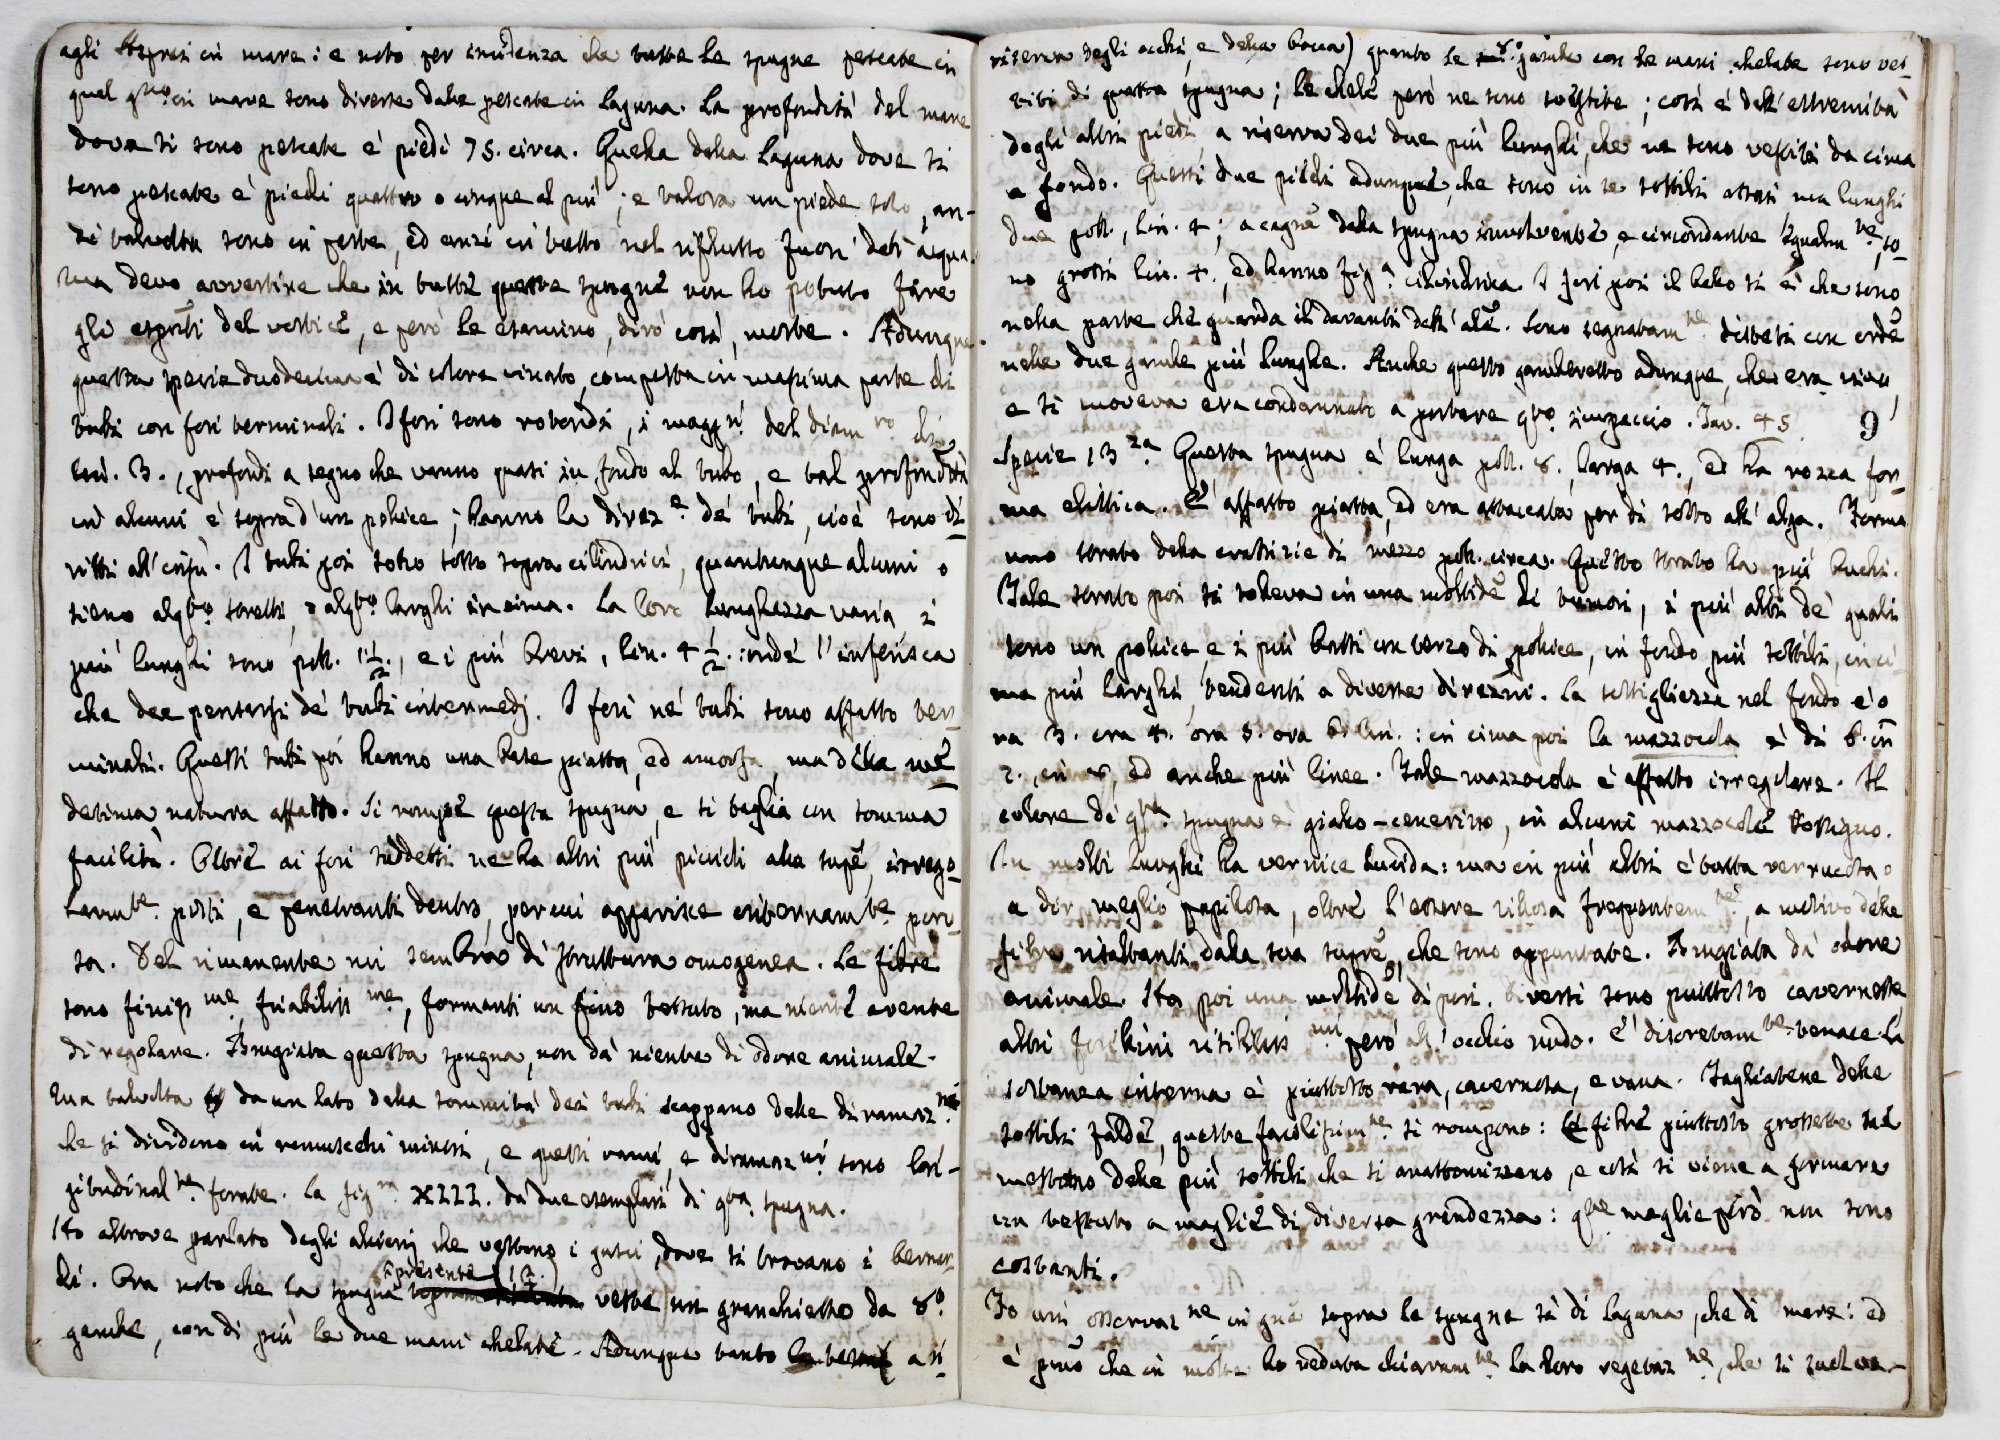 agli Attrezzi in mare: e noto per incidenza che tutte le spugne pescate in
quel gno. in mare sono diverse dalle pescate in Laguna. La profondità del mare
dove si sono pescate è piedi 75. circa. Quella della Laguna dove si
sono pescate è piedi quattro o cinque al più; e talora un piede solo, an-
zi talvolta sono in parte, ed anzi in tutto nel riflusso fuori dell'acqua.
Ma devo avvertire che in tutte queste spugne non ho potuto fare
gli esposti del vertice, e però le esamino, dirò così, morte. Adunque
questa specie duodecima è di colore vinato, composta in massima parte di
tubi con fori terminali. I fori sono rotondi, i maggri. del diamro. di
lin. 3., profondi a segno che vanno quasi in fondo al tubo, e tal profondità
in alcuni è sopra d'un pollice; hanno la direze. de' tubi, cioè sono di
ritti all'insù. I tubi poi sotto sotto sopra cilindrici, quantunque alcuni o
sieno alqto. stretti, o alqto. larghi in cima. La loro lunghezza varia i
più lunghi sono poll. 1 1/2., e i più brevi, lin. 4 1/2.: onde s'inferisca
che dee pensarsi de' tubi intermedj. I fori ne' tubi sono affatto ter-
minali. Questi tubi poi hanno una base piatta, ed amorfa, ma della me-
desima natura affatto. Si rompe questa spugna, e si taglia con somma
facilità. Oltre ai fori suddetti ne ha altri più piccioli alla supe, irrego-
larmte. posti, e penetranti dentro, per cui apparisce internamte. poro-
sa. Del rimanente mi sembra di struttura omogenea. Le fibre
sono finissme, friabilissme, formanti un fino tessuto, ma niente avente
di regolare. Brugiata questa spugna, non dà niente di odore animale.
Ma talvolta da un lato della sommità dei tubi scappano delle diramazni.
che si dividono in ramuscelli minori, e questi rami, e diramazni sono lon-
gitudinalte. forate. La figra. XIII. dà due esemplari di qta. spugna.
Ho altrove parlato degli alcionj che vestono i gusci, dove si trovano i bernar-
di. Ora noto che la spugna presente (12) veste un granchietto da 8o.
gambe, con di più le due mani chelate. Adunque tanto a ri
riserva degli occhi, e della bocca) quanto le 8o. gambe con le mani chelate sono ves-
titi di questa spugna; le chele però ne sono svestite; così è dell'estremità
degli altri piedi, a riserva dei due più lunghi, che ne sono vestiti da cima
a fondo. Questi due piedi adunque, che sono in se sottili assai ma lunghi
due poll., lin. 4; a cagne della spugna involvente, e circondante egualmte., so-
no grossi lin. 4., ed hanno figa. cilindrica. I fori poi il bello si è che sono
nella parte che guarda il davanti dell'ale. Sono segnatamte. disposti con orde
nelle due gambe più lunghe. Anche questo gamberetto adunque, che era vivo,
e si moveva era condannato a portare qto. impaccio. Tav. 45. 9
Specie 13za. Questa spugna è lunga poll. 8. larga 4., ed ha rozza for-
ma ellittica. È affatto piatta, ed era attaccata per di sotto all'alga. Forma
uno strato della crassizie di mezzo poll. circa. Questo strato ha più buchi.
Tale strato poi si solleva in una moltide di tumori, i più alti de' quali
sono un pollice, e i più bassi un terzo di pollice, in fondo più sottili, in ci-
ma più larghi, tendenti a diverse direzni. La sottigliezza nel fondo è o
ra 3. ora 4. ora 5. ora 6 lin.: in cima poi la mazzocola è di 6. in
7., in 8, ed anche più linee. Tale mazzocola è affatto irregolare. Il
colore di qta. spugna è giallo-cenerino, in alcuni mazzocole rossigno.
In molti luoghi ha vernice lucida: ma in più altri è tutta verrucosa o
a dir meglio papillosa, oltre l'essere villosa frequentemte., a motivo delle
fibre risaltanti dalla sua supre, che sono appuntate. Brugiata dà odore
animale. Ha poi una moltide di pori. Diversi sono piuttosto cavernosi
altri forellini visibilissmi però all'occhio nudo. È discretamte. tenace. La
sostanza interna è piuttosto rara, cavernosa, e vana. Tagliatene delle
sottili falde, queste facilissimte. si rompono: Le fibre piuttosto grossette tra
mettono delle più sottili che si anastomizzano, e così si viene a formare
un tessuto a maglie di diversa grandezza: qte maglie però non sono
costanti.
Fo uni osservazne in gne sopra le spugne sì di laguna, che di mare: ed
è primo che in molte ho veduta chiaramte. la loro vegetazne, che si